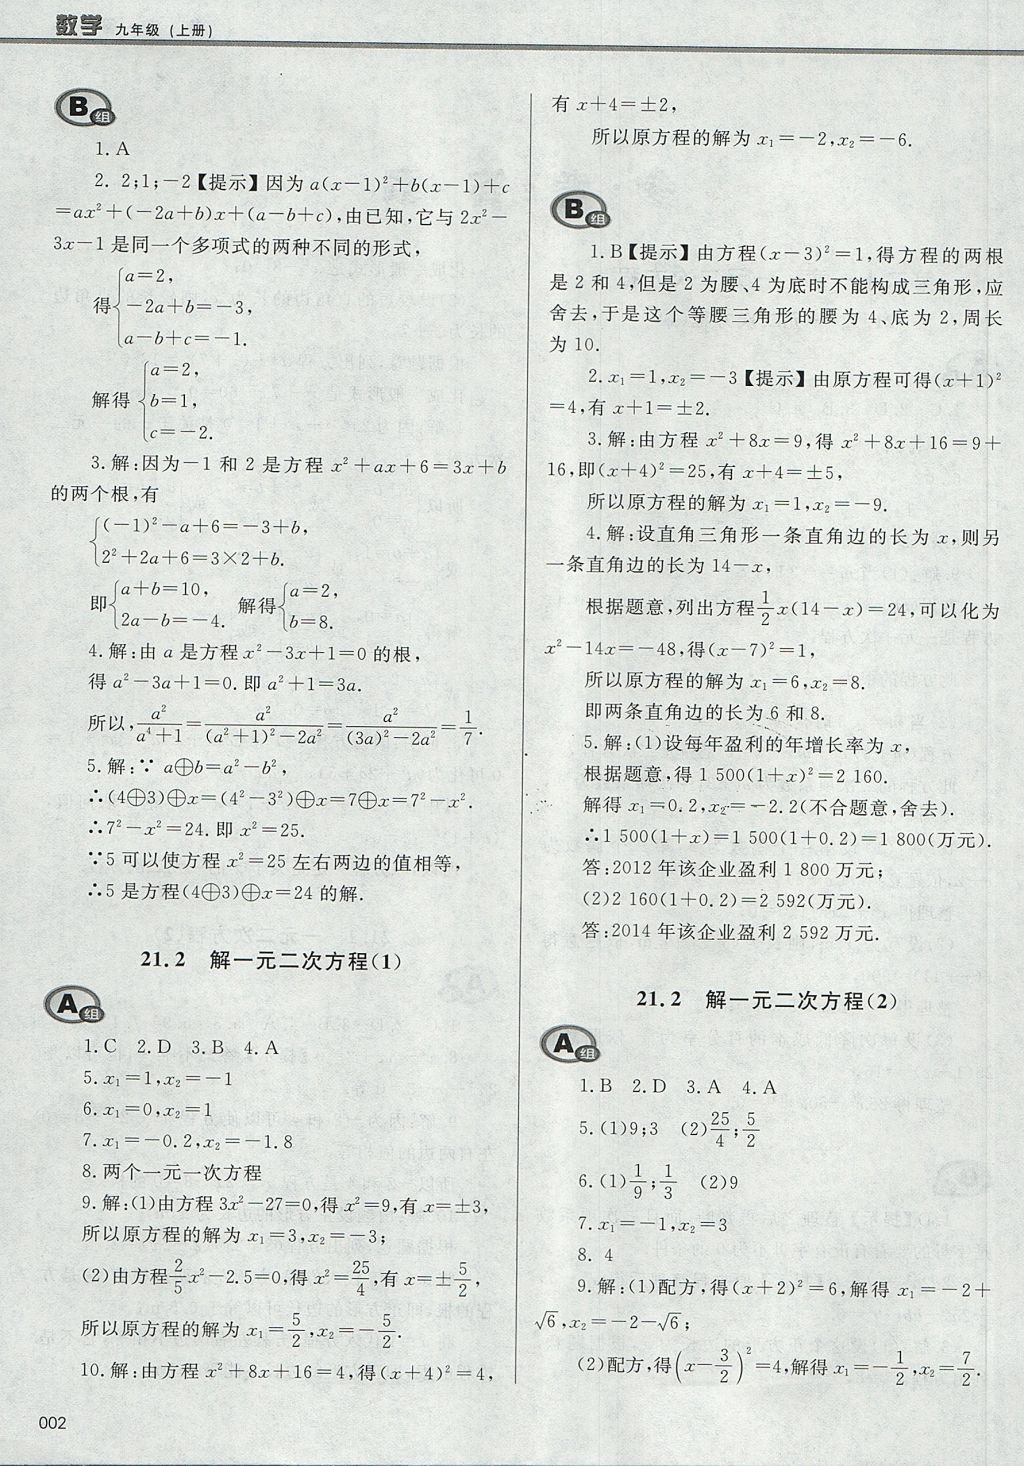 数学 九年级(上册)
B组
1.A
2. 2;1;-2【提示】因为 a(x-1)²+b(x-1)+c
=ax²+(-2a+b)x+(a-b+c),由已知,它与 2x²-
3x-1 是同一个多项式的两种不同的形式,
得{a=2,
-2a+b=-3,
a-b+c=-1.
解得{a=2,
b=1,
c=-2.
3.解:因为-1 和 2 是方程 x²+ax+6=3x+b
的两个根,有
{(-1)²-a+6=-3+b,
2²+2a+6=3×2+b.
即{a+b=10, 2a-b=-4. 解得{a=2, b=8.
4.解:由 a 是方程 x²-3x+1=0 的根,
得 a²-3a+1=0.即 a²+1=3a.
所以,a²/(a⁴+1)=a²/((a²+1)²-2a²)=a²/((3a)²-2a²)=1/7.
5.解:∵ a⊕b=a²-b²,
∴(4⊕3)⊕x=(4²-3²)⊕x=7⊕x=7²-x².
∴7²-x²=24.即 x²=25.
∵5 可以使方程 x²=25 左右两边的值相等,
∴5 是方程(4⊕3)⊕x=24 的解.
21.2 解一元二次方程(1)
A组
1.C 2.D 3.B 4.A
5.x₁=1,x₂=-1
6.x₁=0,x₂=1
7.x₁=-0.2,x₂=-1.8
8.两个一元一次方程
9.解:(1)由方程 3x²-27=0,得 x²=9,有 x=±3,
所以原方程的解为 x₁=3,x₂=-3;
(2)由方程2/5x²-2.5=0,得 x²=25/4,有 x=±5/2,
所以原方程的解为 x₁=5/2,x₂=-5/2.
10.解:由方程 x²+8x+16=4,得(x+4)²=4,
002
有 x+4=±2,
所以原方程的解为 x₁=-2,x₂=-6.
B组
1.B【提示】由方程(x-3)²=1,得方程的两根
是 2 和 4,但是 2 为腰、4 为底时不能构成三角形,应
舍去,于是这个等腰三角形的腰为 4、底为 2,周长
为 10.
2.x₁=1,x₂=-3【提示】由原方程可得(x+1)²
=4,有 x+1=±2.
3.解:由方程 x²+8x=9,得 x²+8x+16=9+
16,即(x+4)²=25,有 x+4=±5,
所以原方程的解为 x₁=1,x₂=-9.
4.解:设直角三角形一条直角边的长为 x,则另
一条直角边的长为 14-x,
根据题意,列出方程1/2x(14-x)=24,可以化为
x²-14x=-48,得(x-7)²=1,
所以原方程的解为 x₁=6,x₂=8.
即两条直角边的长为 6 和 8.
5.解:(1)设每年盈利的年增长率为 x,
根据题意,得 1 500(1+x)²=2 160.
解得 x₁=0.2,x₂=-2.2(不合题意,舍去).
∴1 500(1+x)=1 500(1+0.2)=1 800(万元).
答:2012 年该企业盈利 1 800 万元;
(2)2 160(1+0.2)=2 592(万元).
答:2014 年该企业盈利 2 592 万元.
21.2 解一元二次方程(2)
A组
1.B 2.D 3.A 4.A
5.(1)9;3 (2)25/4;5/2
6.(1)1/9;1/3 (2)9
7.x₁=-1,x₂=3
8. 4
9.解:(1)配方,得(x+2)²=6,解得 x₁=-2+
√6,x₂=-2-√6;
(2)配方,得(x-3/2)²=4,解得 x₁=-1/2,x₂=7/2.